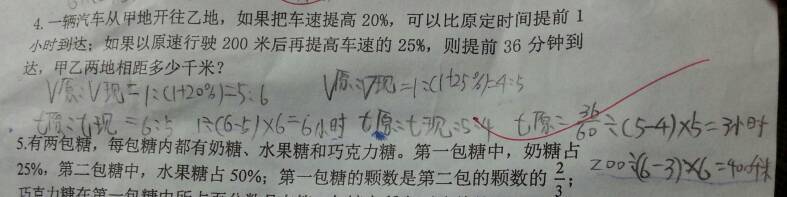 4.一辆汽车从甲地开往乙地，如果把车速提高 20%，可以比原定时间提前 1
小时到达；如果以原速行驶 200 米后再提高车速的 25%，则提前 36 分钟到
达，甲乙两地相距多少千米？
V原:V现=1:(1+20%)=5:6 V原:V现=1:(1+25%)=4:5
t原:t现=6:5 1÷(6-5)×6=6小时 t原:t现=5:4 t原=36/60÷(5-4)×5=3小时
5.有两包糖，每包糖内都有奶糖、水果糖和巧克力糖。第一包糖中，奶糖占
200÷(6-3)×6=400千米
25%，第二包糖中，水果糖占 50%；第一包糖的颗数是第二包的颗数的 2/3；
巧克力糖在第一包糖中所占